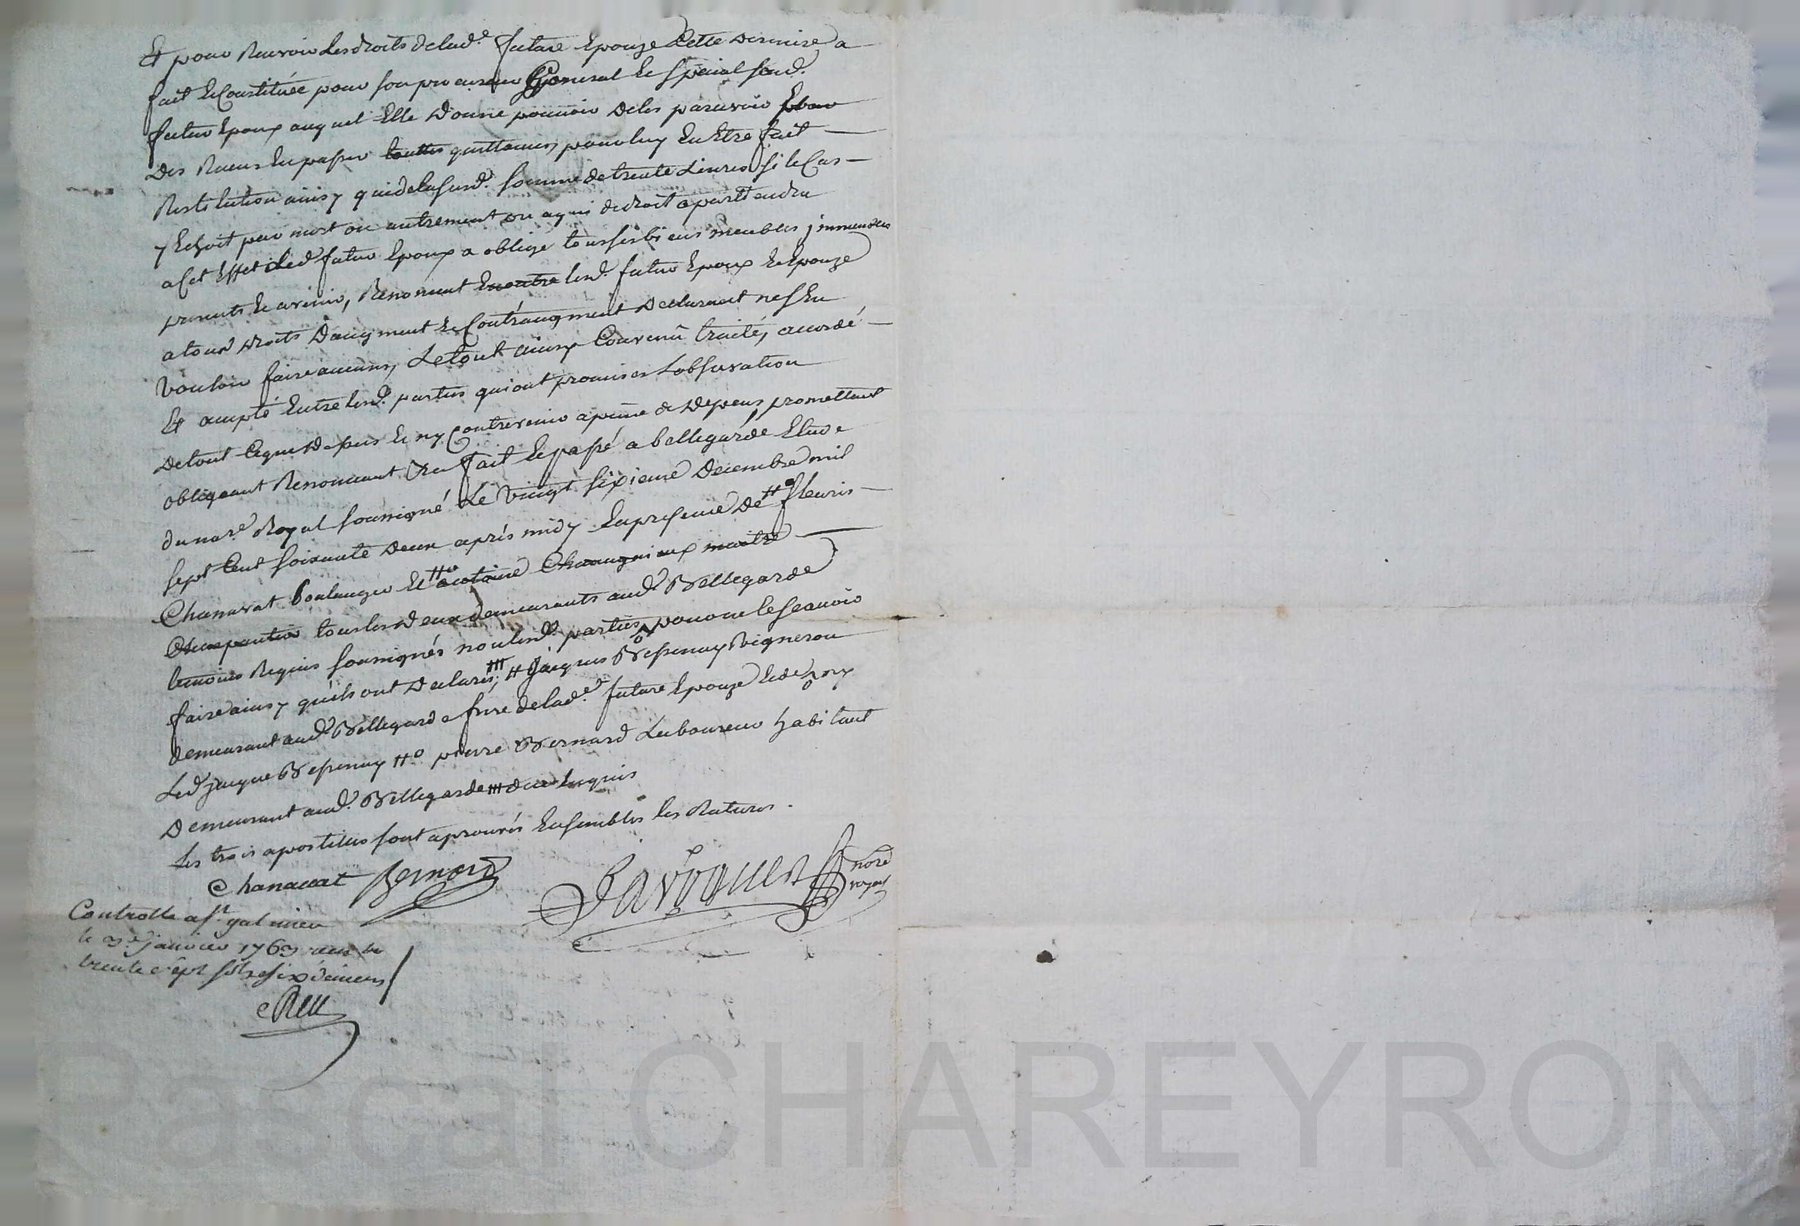 Et pour Recevoir les droits de lad.e future Epouze Cette derniere a
fait Et Constitüée pour son procureur General Et special sond.
futur Epoux auquel Elle donne pouvoir de les parcevoir
des Recus En passer touttes quittances, pour luy En Etre fait
Restitution ainsy que de la susd. somme de trente Livres si le Cas
y Echoit par mort ou autrement ou a qui de droit apartiendra
a Cet Effet Led futur Epoux a obligé tous ses biens meubles, immeubles
presents Et avenir, Renoncent lesd. futur Epoux Et Epouze
a tous droits d'augment Et Contraugment declarant n'Es En
vouloir faire aucuns, Le tout ainsy Convenû traité, accordé
Et accepté Entre lesd. parties qui ont promis L'observation
de tout Ce que depuis Et n'y Contrevenir a peine de depens, promettant
obligeant Renoncant fait Et passé a bellegarde Etude
du no.re Royal soussigné Le vingt sixieme Decembre mil
sept Cent soixante deux aprés midy En presence de fleuris
Chanavat boulanger Et antoine maitre
Charpentier tous les deux demeurants aud. Bellegarde
temoins Requis soussignés non lesd. parties pour ne le scavoir
faire ainsy qu'ils ont declaré, # jacques Vigneron
demeurant aud. Bellegarde frere de lad.e future Epouze
Led. jacque pierre Bernard Laboureur habitant
Demeurant aud. Bellegarde Enquis
Les trois apostilles sont aprouvés Ensembles les Ratures.
Chanavat Bernard
no.re royal
Controllé a s.t galmier
le 3.e janvier 1763 recu
trente sept sols six deniers